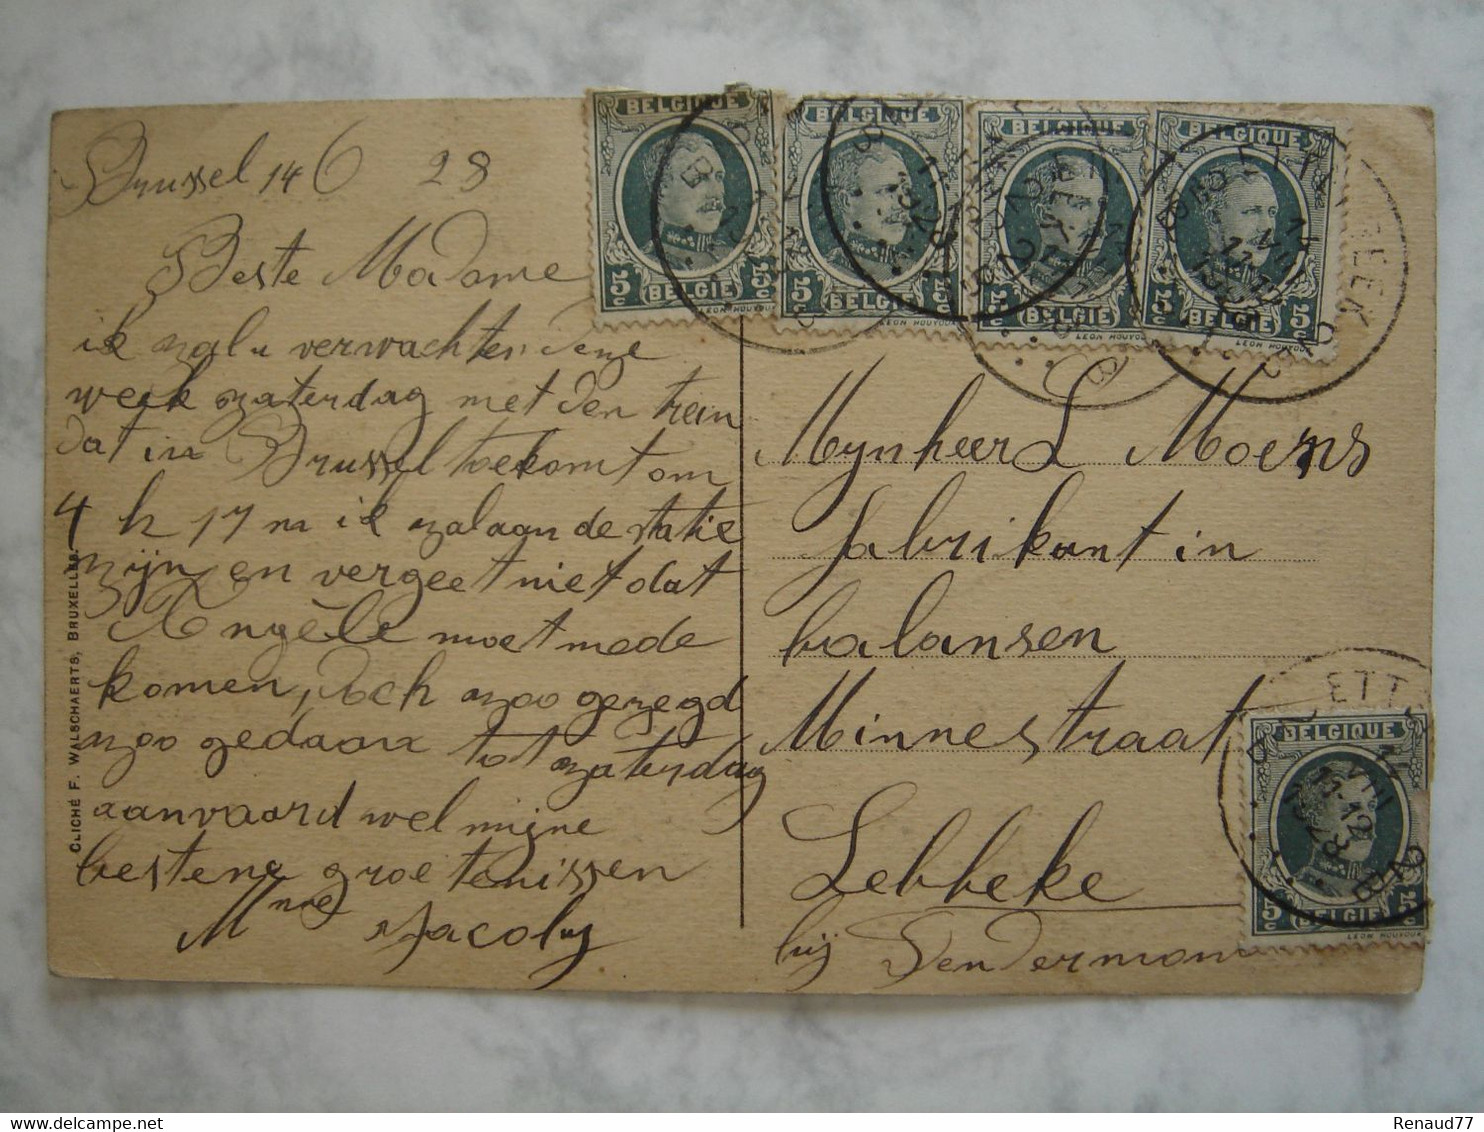 Brussel 14 6 28
Beste Madame
ik zal u verwachten deze
week zaterdag met den trein
dat in Brussel toekomt om
4 h 17 m ik zal aan de statie
zijn en vergeet niet dat
Angèle moet mede
komen, doch zoo gezegd
zoo gedaan tot zaterdag
aanvaard wel mijne
bestene groetenissen
Mme Jacoby
CLICHÉ F. WALSCHAERTS, BRUXELLES.
BELGIQUE
5c 5c
BELGIË
BELGIQUE
5c 5c
BELGIË
LEON HOUYOUX
BELGIQUE
5c
BELGIË
LEON HOUYOUX
BELGIQUE
5c 5c
BELGIË
LEON HOUYOUX
Mynheer L Moens
fabrikant in
balansen
Minnestraat
Lebbeke
bij Dendermon
BELGIQUE
5c 5c
BELGIË
LEON HOUYOUX
11-12
1928
2B
Renaud77